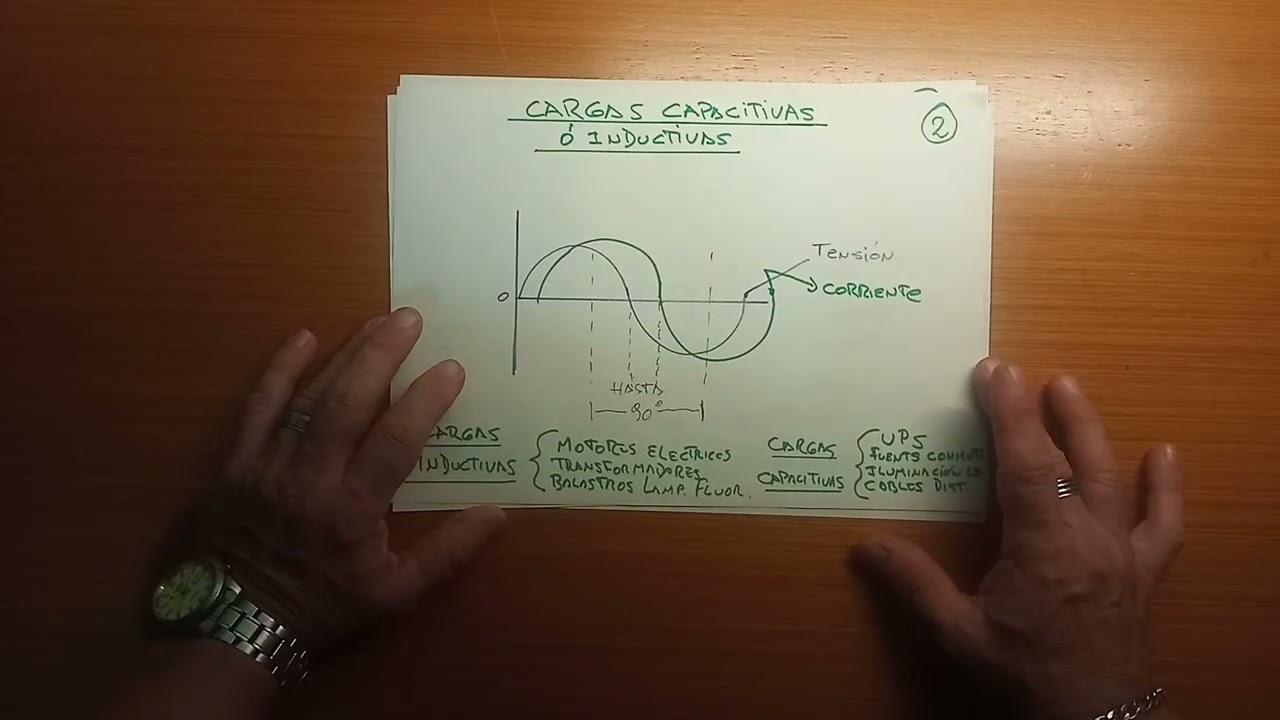 CARGAS CAPACITIVAS
Ó INDUCTIVAS
2
TENSIÓN
CORRIENTE
0
HASTA
90°
CARGAS
INDUCTIVAS
MOTORES ELECTRICOS
TRANSFORMADORES
BALASTROS LAMP. FLUOR.
CARGAS
CAPACITIVAS
UPS
FUENTE CONMUT
ILUMINACIÓN
CABLES DIST.